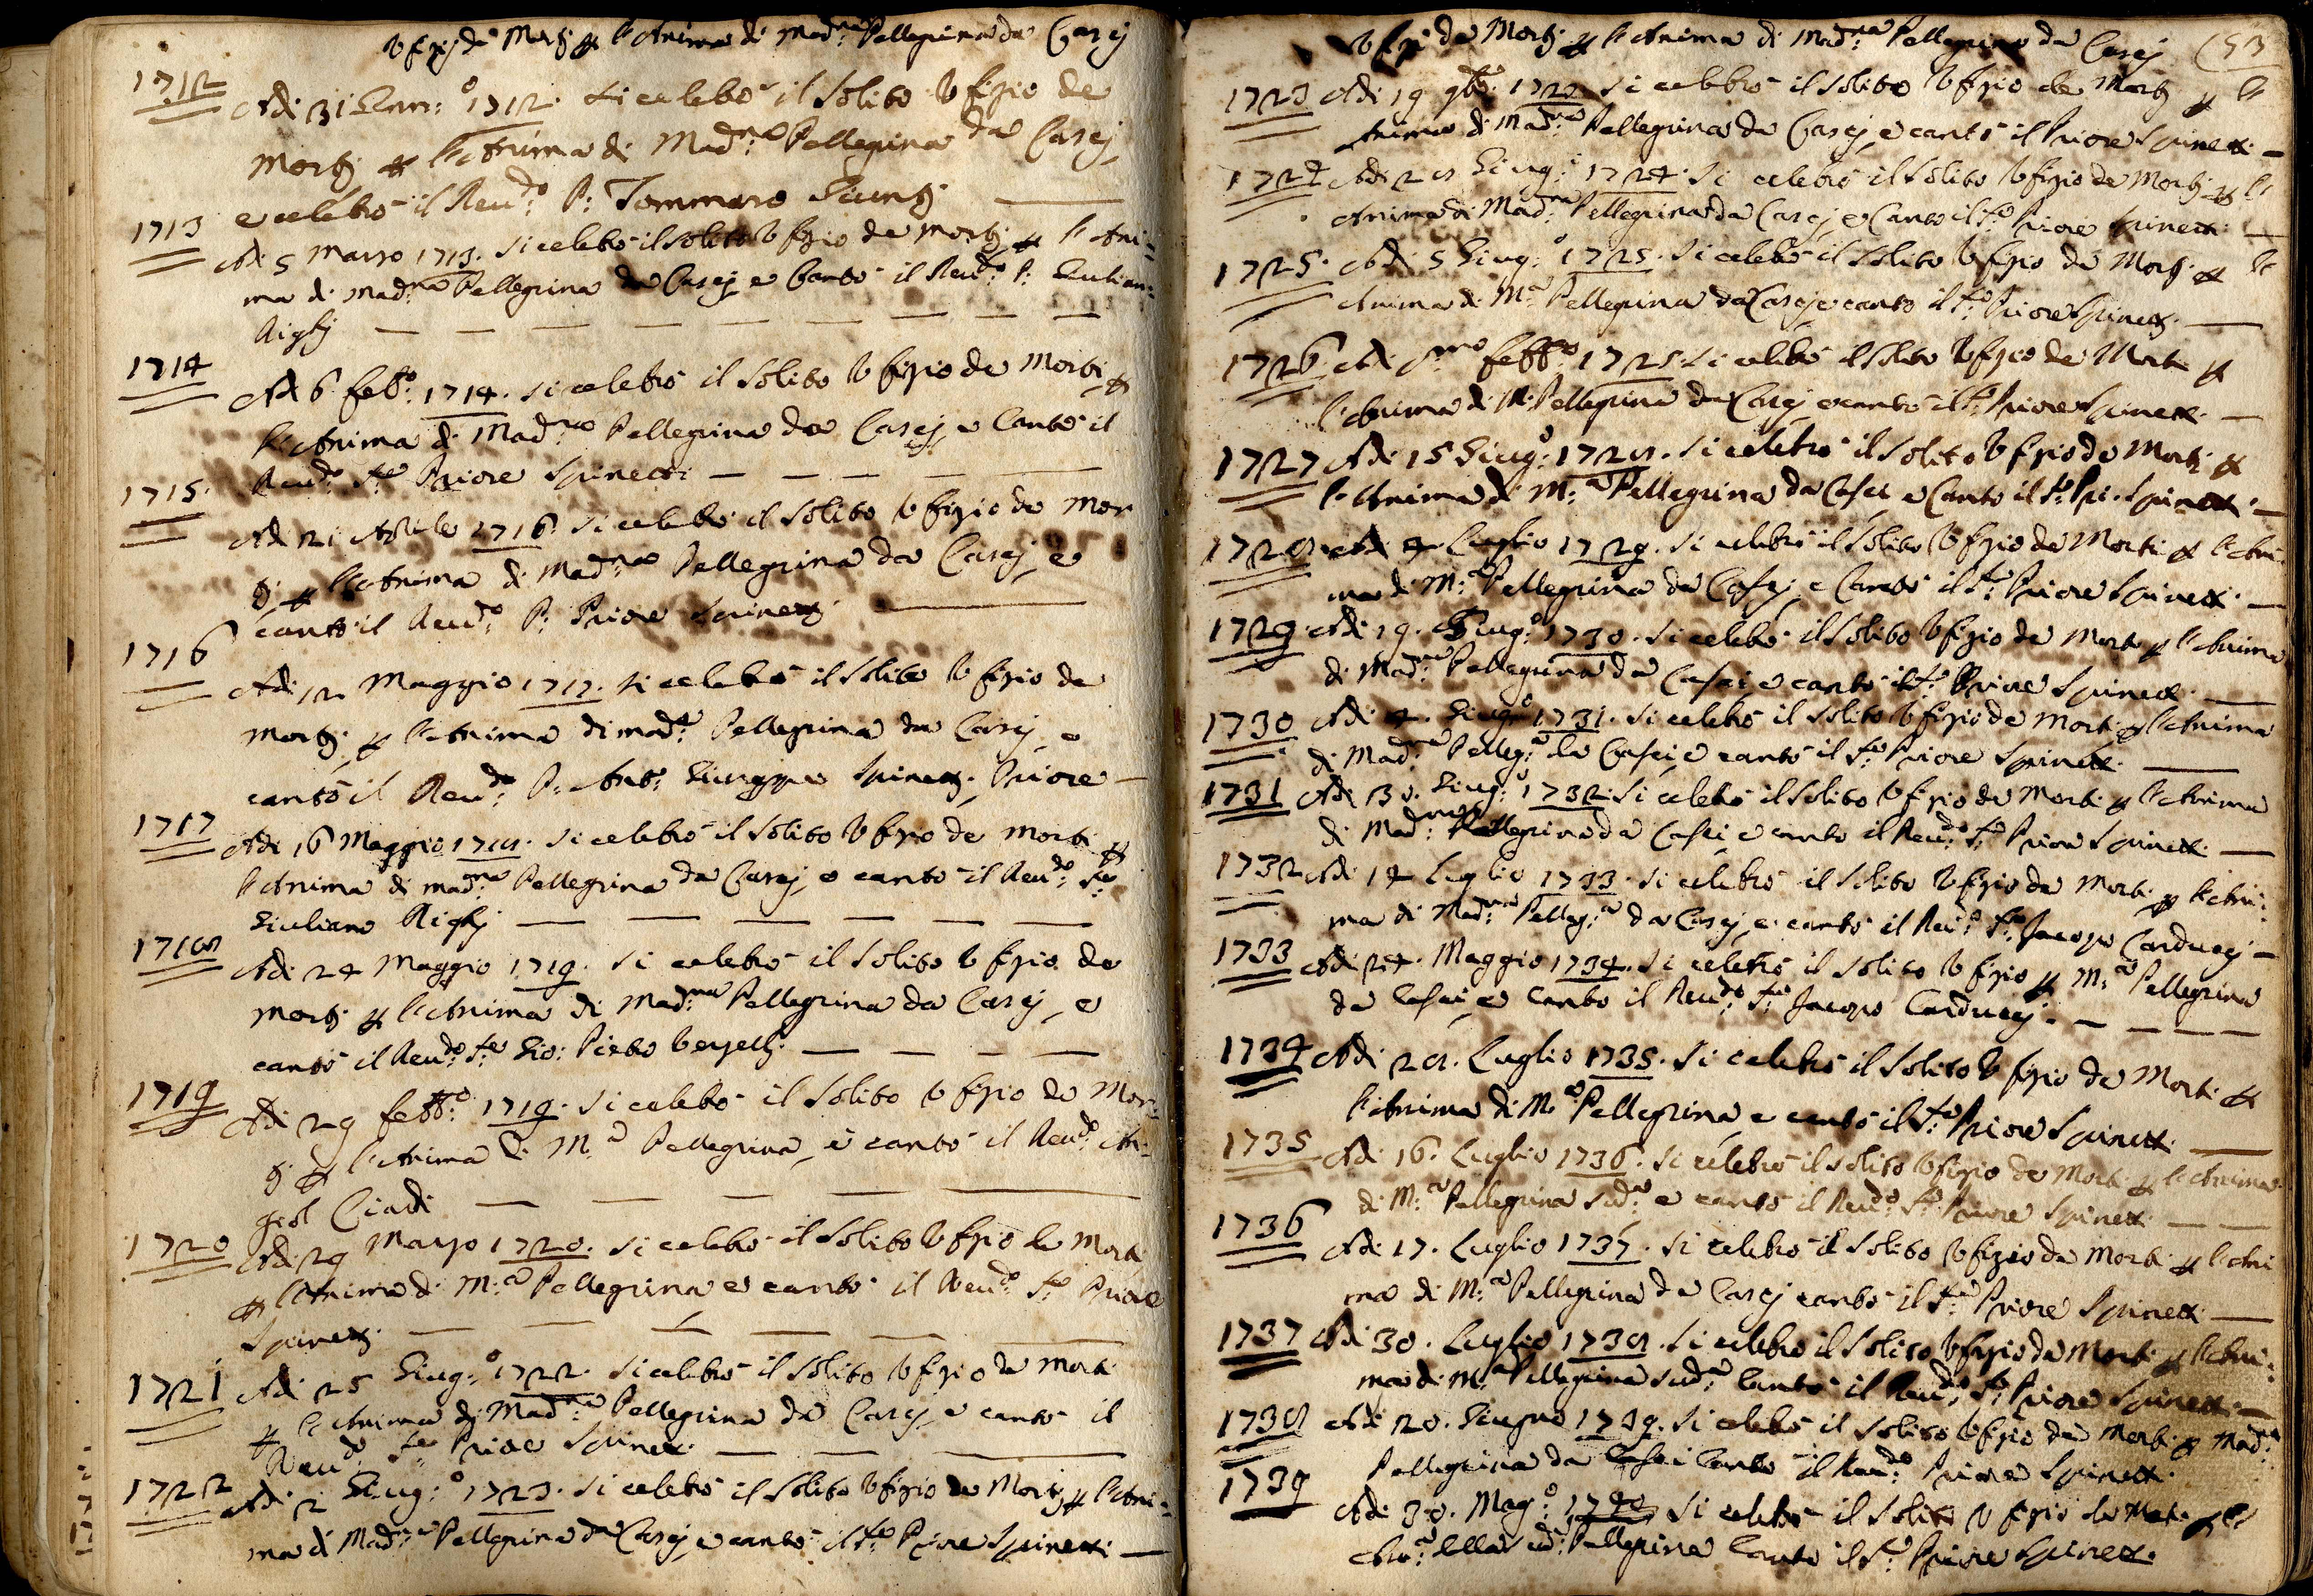 Vfizj de Mortj p l'Anima di Mad.na Pellegrina da Casej
1712 Adi 31 Gen:o 1712. si celebrò il solito Vfizio de
Mortj p l'Anima di Mad:na Pellegrina da Casej,
e celebrò il Reu:do P: Tommaso Giuntj
1713 Adi 5 Marzo 1713. si celebrò il solito Vfizio de Mortj p l'Ani=
ma di Mad:na Pellegrina da Casej e Cantò il Reu:do P: Giulian:
Righj
1714 Adi 6 Feb:o 1714. si celebrò il solito Vfizio de Morti p
l'Anima di Mad:na Pellegrina da Casej, e Cantò il
Reu:do Priore Spinetti
1715. Adi 21 Aprile 1716. si celebrò il solito Vfizio de Mor
tj p l'Anima di Mad:na Pellegrina da Casej, e
cantò il Reu:do P: Priore Spinettj
1716 Adi 12 Maggio 1717. si celebrò il solito Vfizio de
Mortj p l'Anima di Mad:a Pellegrina da Casej, e
cantò il Reu:do P: Ant:o Giuseppe Spinettj Priore
1717 Adi 16 Maggio 1718. si celebrò il solito Vfizio de Morti p
l'Anima di Mad:na Pellegrina da Casej, e cantò il Reu:do
Giuliano Righj
1718 Adi 24 Maggio 1719. si celebrò il solito Vfizio de
Mortj p l'Anima di Mad:na Pellegrina da Casej, e
cantò il Reu:do Gio: Pietro
1719 Adi 29 Febb:o 1719. si celebrò il solito Vfizio de Mor=
tj p l'Anima di M:a Pellegrina, e cantò il Reu:do An=
giol Ciardi
1720 Adi 29 Marzo 1720. si celebrò il solito Vfizio de Morti
p l'Anima di M:a Pellegrina e cantò il Reu:do Priore
Spinettj
1721 Adi 25 Giug:o 1722. si celebrò il solito Vfizio de Morti
p l'Anima di Mad:na Pellegrina da Casej, e cantò il
Reu:do Priore Spinetti
1722 Adi 2 Giug:o 1723. si celebrò il solito Vfizio de Mortj p l'Ani=
ma di Mad:na Pellegrina da Casej, e cantò il Priore Spinetti
Vfizi de Mortj p l'Anima di Mad:na Pellegrina da Casej
53
1723 Adi 19 9bre 1723. si celebrò il solito Vfizio de Mortj p l'
Anima di Mad:na Pellegrina da Casej, e cantò il Priore Spinetti
1724 Adi 28 Giug:o 1724. si celebrò il solito Vfizio de Mortj p l'
Anima di Mad:na Pellegrina da Casej, e Cantò il Priore Spinetti
1725. Adi 5 Giug:o 1725. si celebrò il solito Vfizio de Mortj p l'
Anima di M:a Pellegrina da Casej e cantò il Priore Spinettj
1726 Adi p:mo Febb:o si celebrò il solito Vfizio de Morti p
l'Anima di M: Pellegrina da Casej e cantò il Priore Spinetti
1727 Adi 15 Giug:o 1728. si celebrò il solito Vfizio de Mortj p
l'Anima di M:a Pellegrina da Casei e Cantò il Pri. Spinetti
1728 Adi 4 Luglio 1729. si celebrò il solito Vfizio de Morti p l'Ani=
ma di M:a Pellegrina da Casej e Cantò il Priore Spinetti
1729 Adi 19. Giug:o 1730. si celebrò il solito Vfizio de Morti p l'Anima
di Mad:na Pellegrina da Casei e cantò il Priore Spinetti
1730 Adi 4. Giug:o 1731. si celebrò il solito Vfizio de Morti p l'Anima
di Mad:na Pelleg:a da Casei, e cantò il Priore Spinetti
1731 Adi 30. Giug:o 1732. si celebrò il solito Vfizio de Morti p l'Anima
di Mad:na Pellegrina da Casei e cantò il Reu:do Priore Spinetti
1732 Adi 14 Luglio 1733. si celebrò il solito Vfizio de Morti p l'Ani=
ma di Mad:na Pelleg:a da Casej e cantò il Reu:do Jacopo Carduccj
1733 Adi 24. Maggio 1734. si celebrò il solito Vfizio p M:a Pellegrina
da Casei e Cantò il Reu:do Jacopo Carduccj
1734 Adi 28. Luglio 1735. si celebrò il solito Vfizio de Morti p
l'Anima di M:a Pellegrina e cantò il Priore Spinetti
1735 Adi 16. Luglio 1736. si celebrò il solito Vfizio de Morti p l'Anima
di M:a Pellegrina sud:a e cantò il Reu:do Priore Spinetti
1736 Adi 17. Luglio 1737. si celebrò il solito Vfizio de Morti p l'Ani
ma di M:a Pellegrina da Casej cantò il Priore Spinetti
1737 Adi 30. Luglio 1738. si celebrò il solito Vfizio de Morti p l'Ani=
ma di M:a Pellegrina sud:a Cantò il Reu:do Priore Spinetti
1738 Adi 20. Giugno 1739. si celebrò il solito Vfizio de Morti p Mad:na
Pellegrina da Casei Cantò il Reu:do Priore Spinetti
1739 Adi 30. Mag:o 1740 si celebrò il solito Vfizio de Morti p l'
Pellegrina Cantò il Priore Spinetti